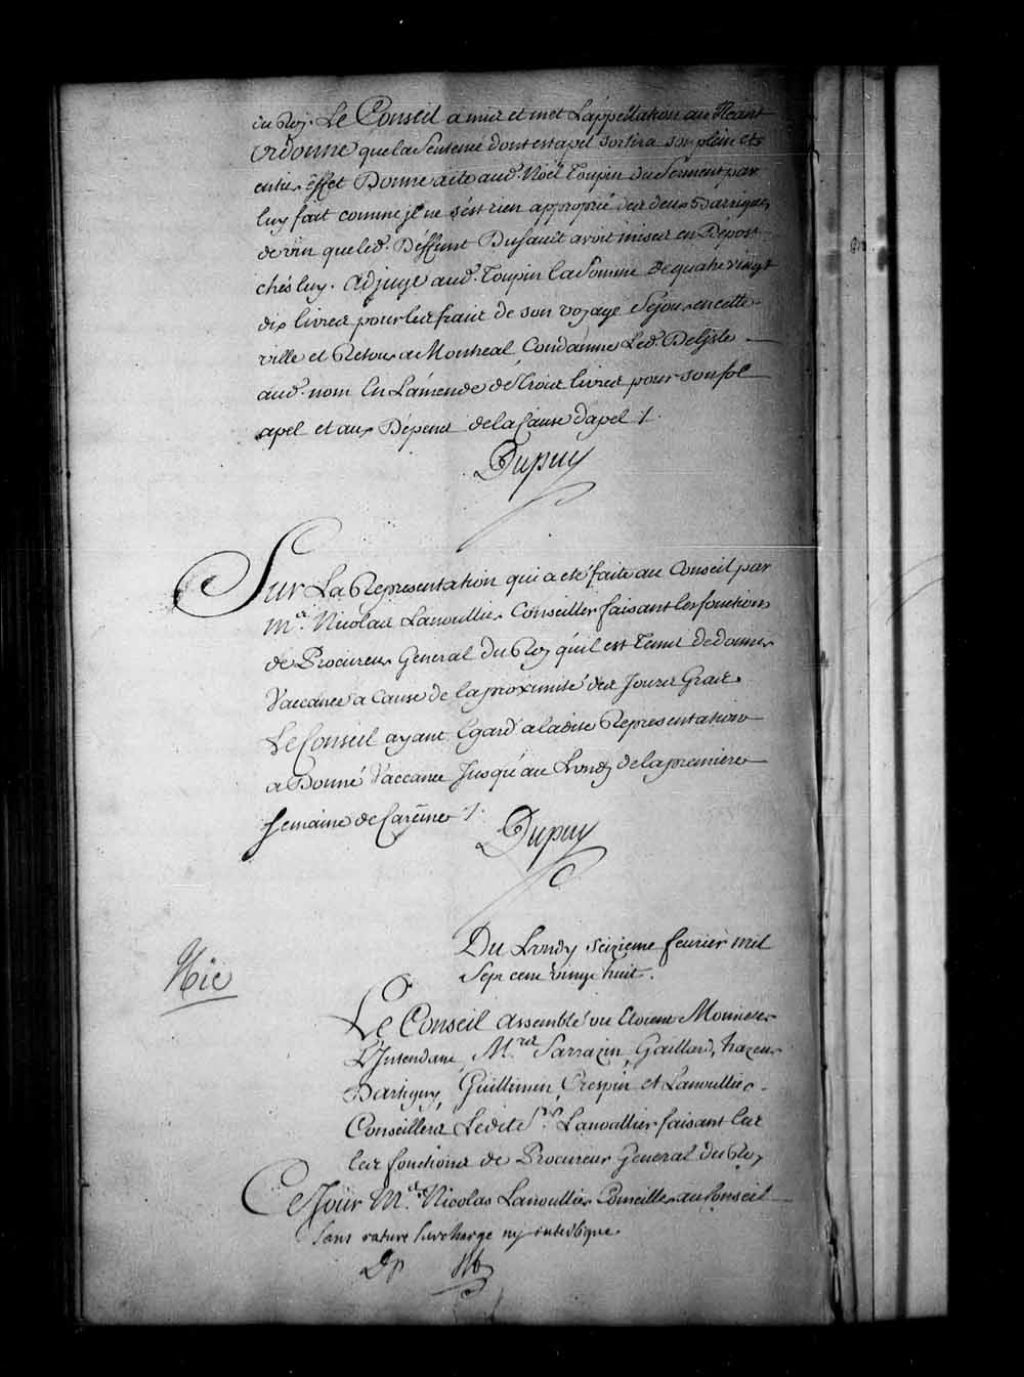 du Roy. Le Conseil a mis et met L'appellation au Neant
Ordonne que la Sentence dont est apel sortira son plein et
entier Effet Donne acte aud. Noël Toupin du Serment par
luy fait comme jl ne s'est rien approprié des deux Barriques
de vin que led. Deffunt Dufault avoit mises en Depost
chés luy. Adjuge aud. Toupin La Somme de quatre vingt
dix livres pour les frais de son voyage Sejour en cette
ville et Retour a Montreal, Condamne Led. Delisle
aud. nom En L'amende de Trois livres pour son fol
apel et aux Dépens de la Cause d'apel ./.
Dupuy
Sur La Representation qui a eté faite au Conseil par
Me. Nicolas Lanoullier Conseiller faisant les fonctions
de Procureur General du Roy qu'il est Temps de donner
Vaccance a Cause de la proximité des Jours Gras.
Le Conseil ayant Egard a ladite Representation
a Donné Vaccance Jusqu'au Lundy de la premiere
semaine de Caréme ./.
Dupuy
Du Lundy seizieme feurier mil
Sept cent vingt huit.
Nic
Le Conseil Assemblé ou Etoient Monsieur
L'Intendant, Mres. Sarrazin, Gaillard, hazeur
Dartigny, Guillimin, Crespin et Lanoullier
Conseillers Ledit Sr. Lanoullier faisant les
les fonctions de Procureur General du Roy
Ce Jour Me. Nicolas Lanoullier Conseiller au Conseil
Sans rature surcharge ny interligne
Dp